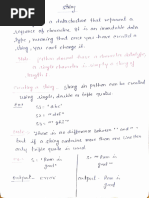 String
is a data structure that represent a
sequence of characters. It is an immutable data
type, meaning that once you have created a
string, you can not change it.
Note : python doesn't have a character datatype,
A single character is simply a string of
length 1
Creating a string : String in python can be created
using single, double or triple quotes.
S1 = 'Abc'
S2 =
S3 =
Note : There is no difference between ' ' and " "
but if a string includes more than one line then only
triple quotes is used.
good'
good"
output : error
output :
good"